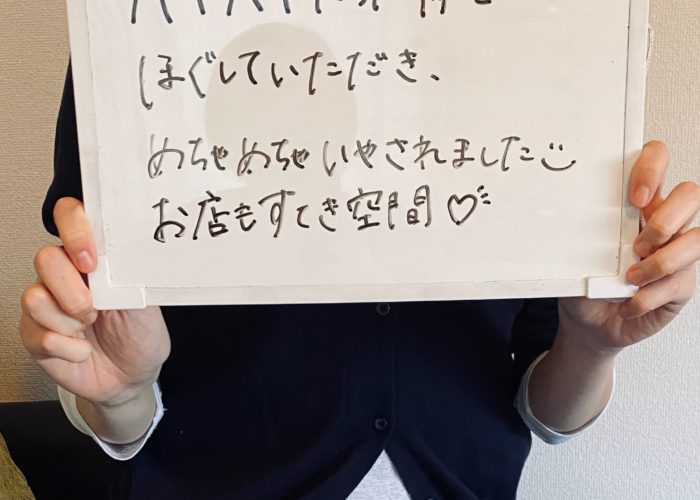 ほぐしていただき、
めちゃめちゃいやされました
お店もすてき空間♡